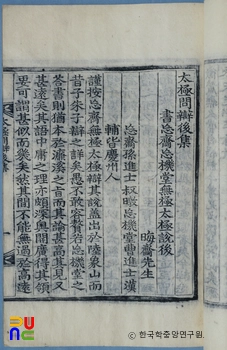 太極問辯後集
晦齋先生
書忘齋忘機堂無極太極說後
忘齋孫進士叔暾忘機堂曹進士漢
輔皆慶州人
謹按忘齋無極太極辯其說蓋出於陸象山而
昔子朱子辯之詳矣愚不敢容贅若忘機堂之
答書則猶本於濂溪之旨而其論甚高其見又
甚遠矣其語中庸之理亦頗深奧開廣得其領
要可謂甚似而幾矣然其間不能無過於高遠
© 한국학중앙연구원